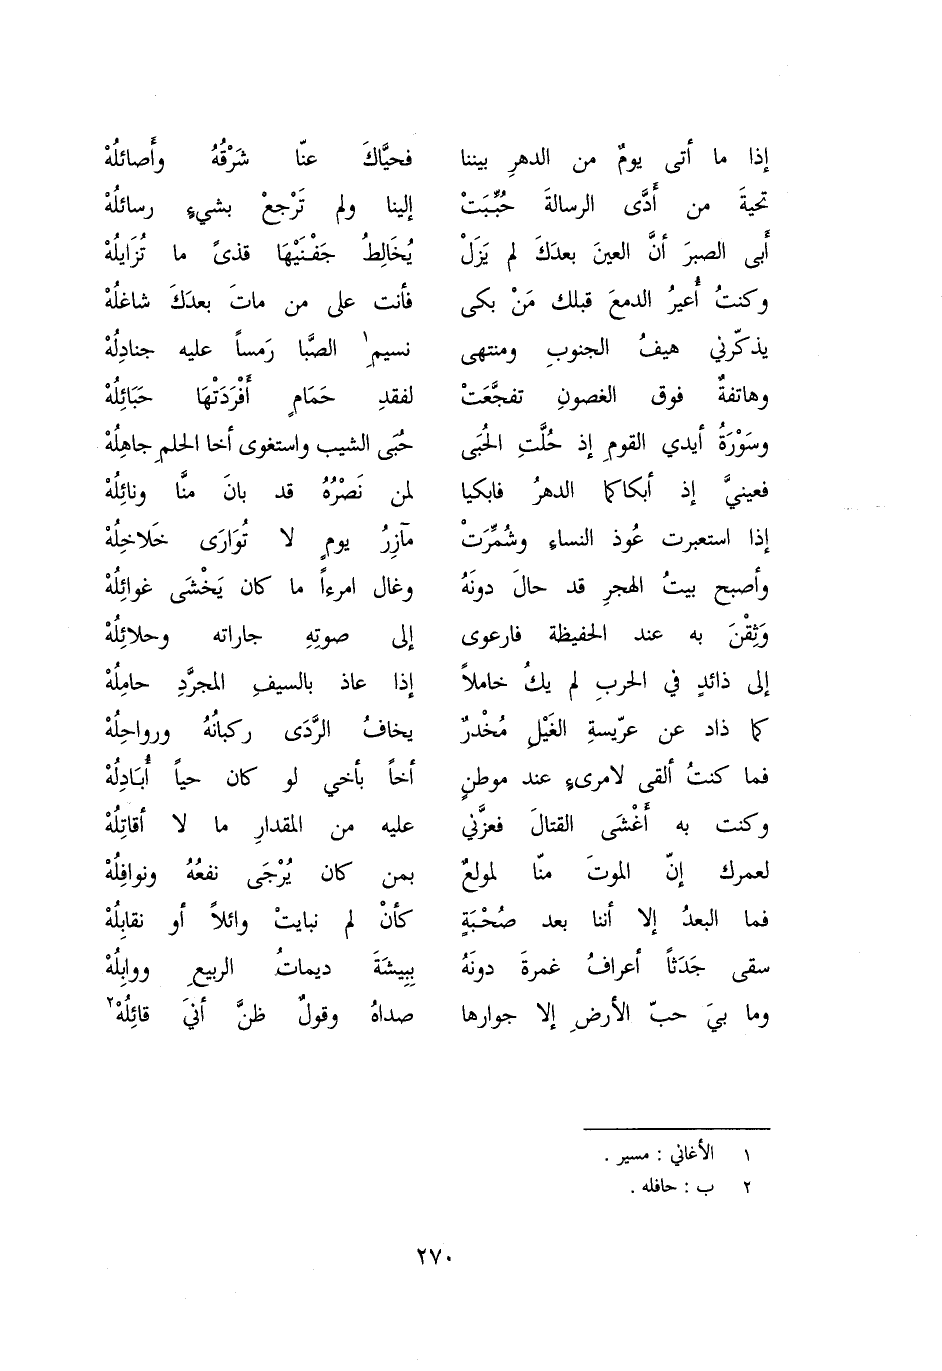 إذا ما أتى يومٌ من الدهرِ بيننا فحيَّاكَ عنّا شَرْقُهُ وأَصائلُهْ
تحيةَ من أَدَّى الرسالةَ حُبِّبَتْ إلينا ولم تَرْجعْ بشيءٍ رسائلُهْ
أَبى الصبرَ أنَّ العينَ بعدَكَ لم يَزَلْ يُخَالِطُ جَفْنَيْهَا قذىً ما تُزَايلُهْ
وكنتُ أُعيرُ الدمعَ قبلك مَنْ بكى فأنت على من ماتَ بعدَكَ شاغلُهْ
يذكّرني هيفُ الجنوبِ ومنتهى نسيمِ١ الصَّبا رَمساً عليه جنادِلُهْ
وهاتفةٌ فوق الغصونِ تفجَّعَتْ لفقدِ حَمَامٍ أَفْرَدَتْهَا حَبَائِلُهْ
وسَوْرَةُ أيدي القومِ إذ حُلَّتِ الحُبَى حُبَى الشيب واستغوى أخا الحلمِ جاهِلُهْ
فعينيَّ إذ أبكاكما الدهرُ فابكيا لمن نَصْرُهُ قد بانَ منَّا ونائِلُهْ
إذا استعبرت عُوذ النساءِ وشُمِّرَتْ مآزِرُ يومٍ لا تُوَارَى خَلاخِلُهْ
وأصبح بيتُ الهجرِ قد حالَ دونَهُ وغال امرءاً ما كان يَخْشَى غوائِلُهْ
وَثِقْنَ به عند الحفيظة فارعوى إلى صوتِهِ جاراته وحلائِلُهْ
إلى ذائدٍ في الحربِ لم يكُ خاملاً إذا عاذ بالسيفِ المجرَّدِ حامِلُهْ
كما ذاد عن عرّيسةِ الغَيْلِ مُخْدرٌ يخافُ الرَّدَى ركبانُهُ ورواحِلُهْ
فما كنتُ ألقى لامرىءٍ عند موطنٍ أخاً بأخي لو كان حياً أُبَادِلُهْ
وكنت به أَغْشَى القتالَ فعزَّني عليه من المقدارِ ما لا أقاتِلُهْ
لعمرك إنّ الموتَ منّا لمولعٌ بمن كان يُرْجَى نفعُهُ ونوافِلُهْ
فما البعدُ إلا أننا بعد صُحْبَةٍ كأنْ لم نبايتْ وائلاً أو نقابِلُهْ
سقى جَدَثاً أعرافُ غمرةَ دونَهُ بِبِيشَةَ ديماتُ الربيعِ ووابِلُهْ
وما بيَ حبّ الأرضِ إلا جوارها صداهُ وقولٌ ظنَّ أنيَ قائِلُهْ٢
١ الأغاني : مسير .
٢ ب : حافله .
٢٧٠